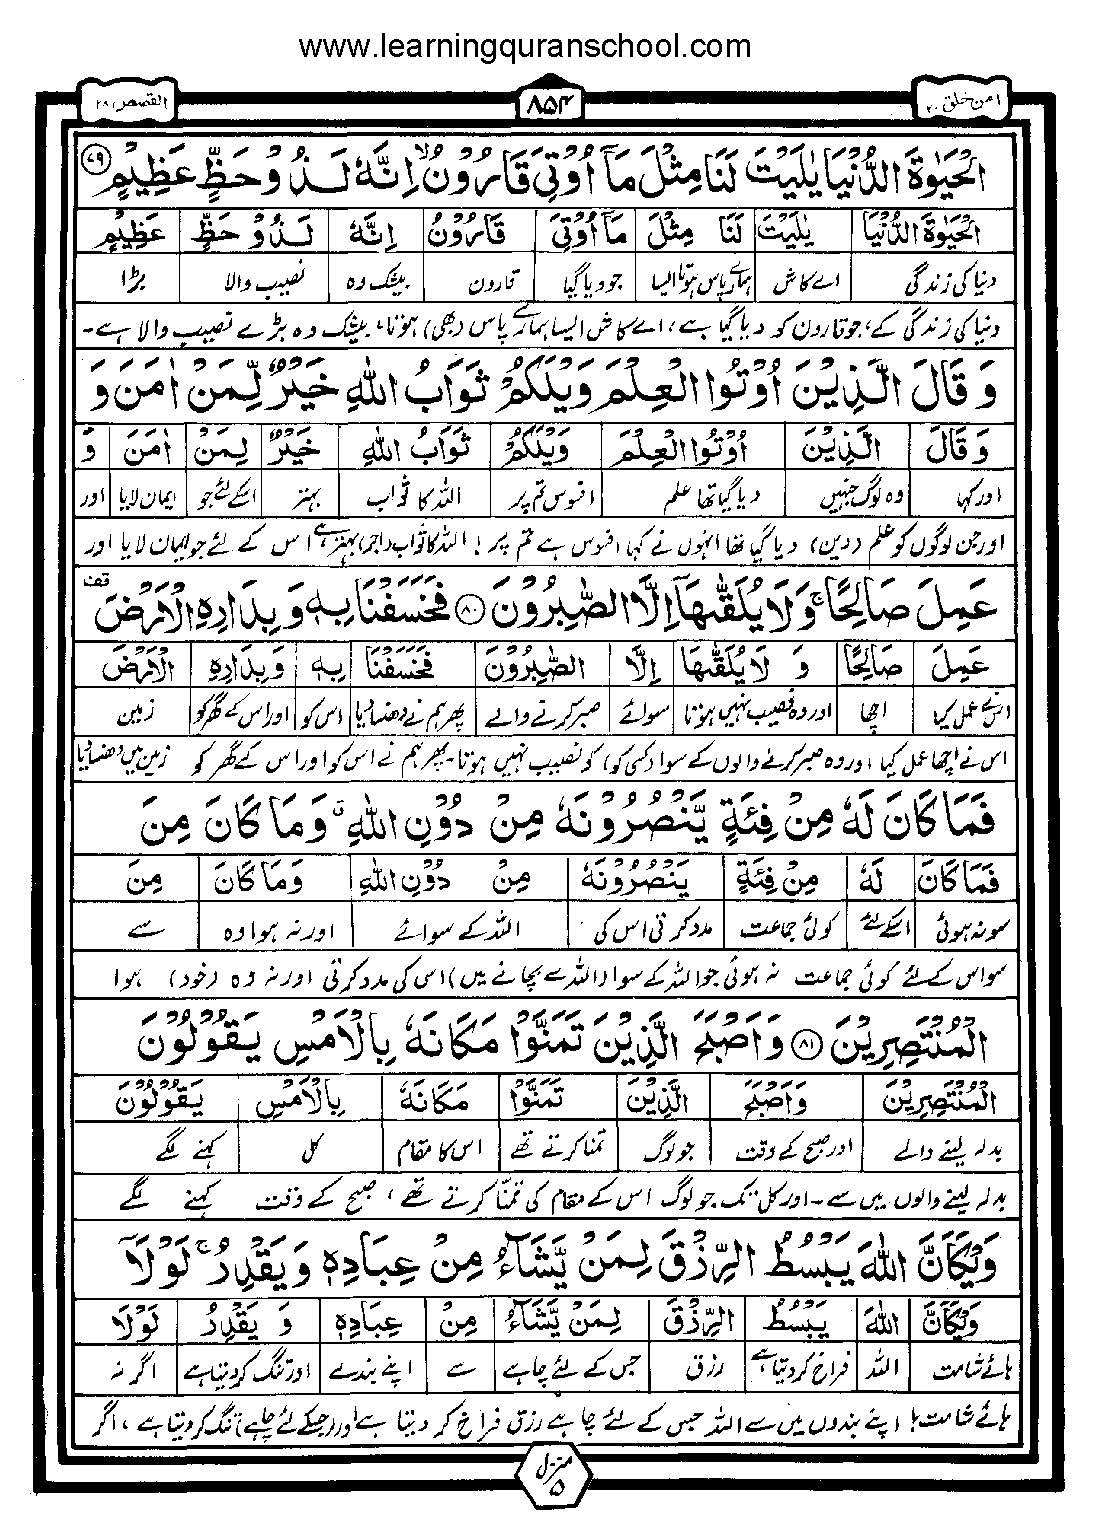 www.learningquranschool.com
امن خلق ۲۰ ۸۵۴ القصص ۲۸
الْحَيٰوةَ الدُّنْيَا يٰلَيْتَ لَنَا مِثْلَ مَآ اُوْتِيَ قَارُوْنُ ۙ اِنَّهٗ لَذُوْ حَظٍّ عَظِيْمٍ ۷۹
الْحَيٰوةَ الدُّنْيَا يٰلَيْتَ لَنَا مِثْلَ مَآ اُوْتِيَ قَارُوْنُ اِنَّهٗ لَذُوْ حَظٍّ عَظِيْمٍ
دنیا کی زندگی اے کاش ہمارے پاس ہوتا ایسا جو دیا گیا قارون بیشک وہ نصیب والا بڑا
دنیا کی زندگی کے، جو قارون کو دیا گیا ہے، اے کاش ایسا ہمارے پاس (بھی) ہوتا، بیشک وہ بڑے نصیب والا ہے۔
وَ قَالَ الَّذِيْنَ اُوْتُوا الْعِلْمَ وَيْلَكُمْ ثَوَابُ اللّٰهِ خَيْرٌ لِّمَنْ اٰمَنَ وَ
وَ قَالَ الَّذِيْنَ اُوْتُوا الْعِلْمَ وَيْلَكُمْ ثَوَابُ اللّٰهِ خَيْرٌ لِّمَنْ اٰمَنَ وَ
اور کہا وہ لوگ جنہیں دیا گیا تھا علم افسوس تم پر اللہ کا ثواب بہتر اسکے لئے جو ایمان لایا اور
اور جن لوگوں کو علم (دین) دیا گیا تھا انہوں نے کہا افسوس ہے تم پر! اللہ کا ثواب (اجر) بہتر ہے، اس کے لئے جو ایمان لایا اور
عَمِلَ صَالِحًا ۚ وَلَا يُلَقّٰىهَآ اِلَّا الصّٰبِرُوْنَ ۸۰ فَخَسَفْنَا بِهٖ وَ بِدَارِهِ الْاَرْضَ قف
عَمِلَ صَالِحًا وَ لَا يُلَقّٰىهَا اِلَّا الصّٰبِرُوْنَ فَخَسَفْنَا بِهٖ وَ بِدَارِهِ الْاَرْضَ
اس نے عمل کیا اچھا اور وہ نصیب نہیں ہوتا سوائے صبر کرنے والے پھر ہم نے دھنسا دیا اس کو اور اس کے گھر کو زمین
اس نے اچھا عمل کیا اور وہ صبر کرنے والوں کے سوا (کسی کو) کو نصیب نہیں ہوتا۔ پھر ہم نے اس کو اور اس کے گھر کو زمین میں دھنسا دیا
فَمَا كَانَ لَهٗ مِنْ فِئَةٍ يَّنْصُرُوْنَهٗ مِنْ دُوْنِ اللّٰهِ ۤ وَمَا كَانَ مِنَ
فَمَا كَانَ لَهٗ مِنْ فِئَةٍ يَّنْصُرُوْنَهٗ مِنْ دُوْنِ اللّٰهِ وَمَا كَانَ مِنَ
سو نہ ہوئی اسکے لئے کوئی جماعت مدد کرتی اس کی اللہ کے سوائے اور نہ ہوا وہ سے
سو اس کے لئے کوئی جماعت نہ ہوئی جو اللہ کے سوا (اللہ سے بچانے میں) اس کی مدد کرتی اور نہ وہ (خود) ہوا
الْمُنْتَصِرِيْنَ ۸۱ وَاَصْبَحَ الَّذِيْنَ تَمَنَّوْا مَكَانَهٗ بِالْاَمْسِ يَقُوْلُوْنَ
الْمُنْتَصِرِيْنَ وَاَصْبَحَ الَّذِيْنَ تَمَنَّوْا مَكَانَهٗ بِالْاَمْسِ يَقُوْلُوْنَ
بدلہ لینے والے اور صبح کے وقت جو لوگ تمنا کرتے تھے اس کا مقام کل کہنے لگے
بدلہ لینے والوں میں سے۔ اور کل تک جو لوگ اس کے مقام کی تمنّا کرتے تھے، صبح کے وقت کہنے لگے
وَيْكَاَنَّ اللّٰهَ يَبْسُطُ الرِّزْقَ لِمَنْ يَّشَآءُ مِنْ عِبَادِهٖ وَيَقْدِرُ ۚ لَوْلَآ
وَيْكَاَنَّ اللّٰهَ يَبْسُطُ الرِّزْقَ لِمَنْ يَّشَآءُ مِنْ عِبَادِهٖ وَ يَقْدِرُ لَوْلَا
ہائے شامت اللہ فراخ کر دیتا ہے رزق جس کے لئے چاہے سے اپنے بندے اور تنگ کر دیتا ہے اگر نہ
ہائے شامت! اپنے بندوں میں سے اللہ جس کے لئے چاہے رزق فراخ کر دیتا ہے اور (جسکے لئے چاہے) تنگ کر دیتا ہے، اگر
منزل ۵